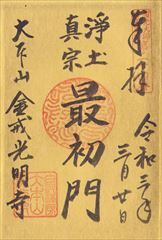 奉拝
令和三年
三月廿日
浄土
真宗
最初門
大本山 金戒光明寺